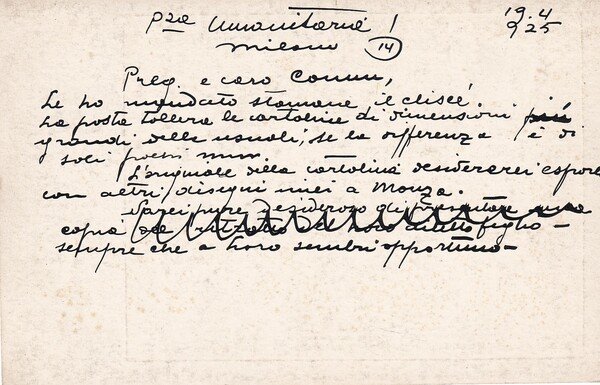 Pza Umanitaria 1
Milano (14)
19.4
925
Preg. e caro Comm,
Le ho mandato stamane, il cliscé.
La posta tollera le cartoline di dimensioni più
grandi delle usuali, se la differenza è di
soli pochi mm.
L'originale della cartolina desidererei esporre
con altri disegni miei a Monza.
Sarei pure desideroso di presentare una
copia del ritratto del loro figlio -
sempre che a loro sembri opportuno -